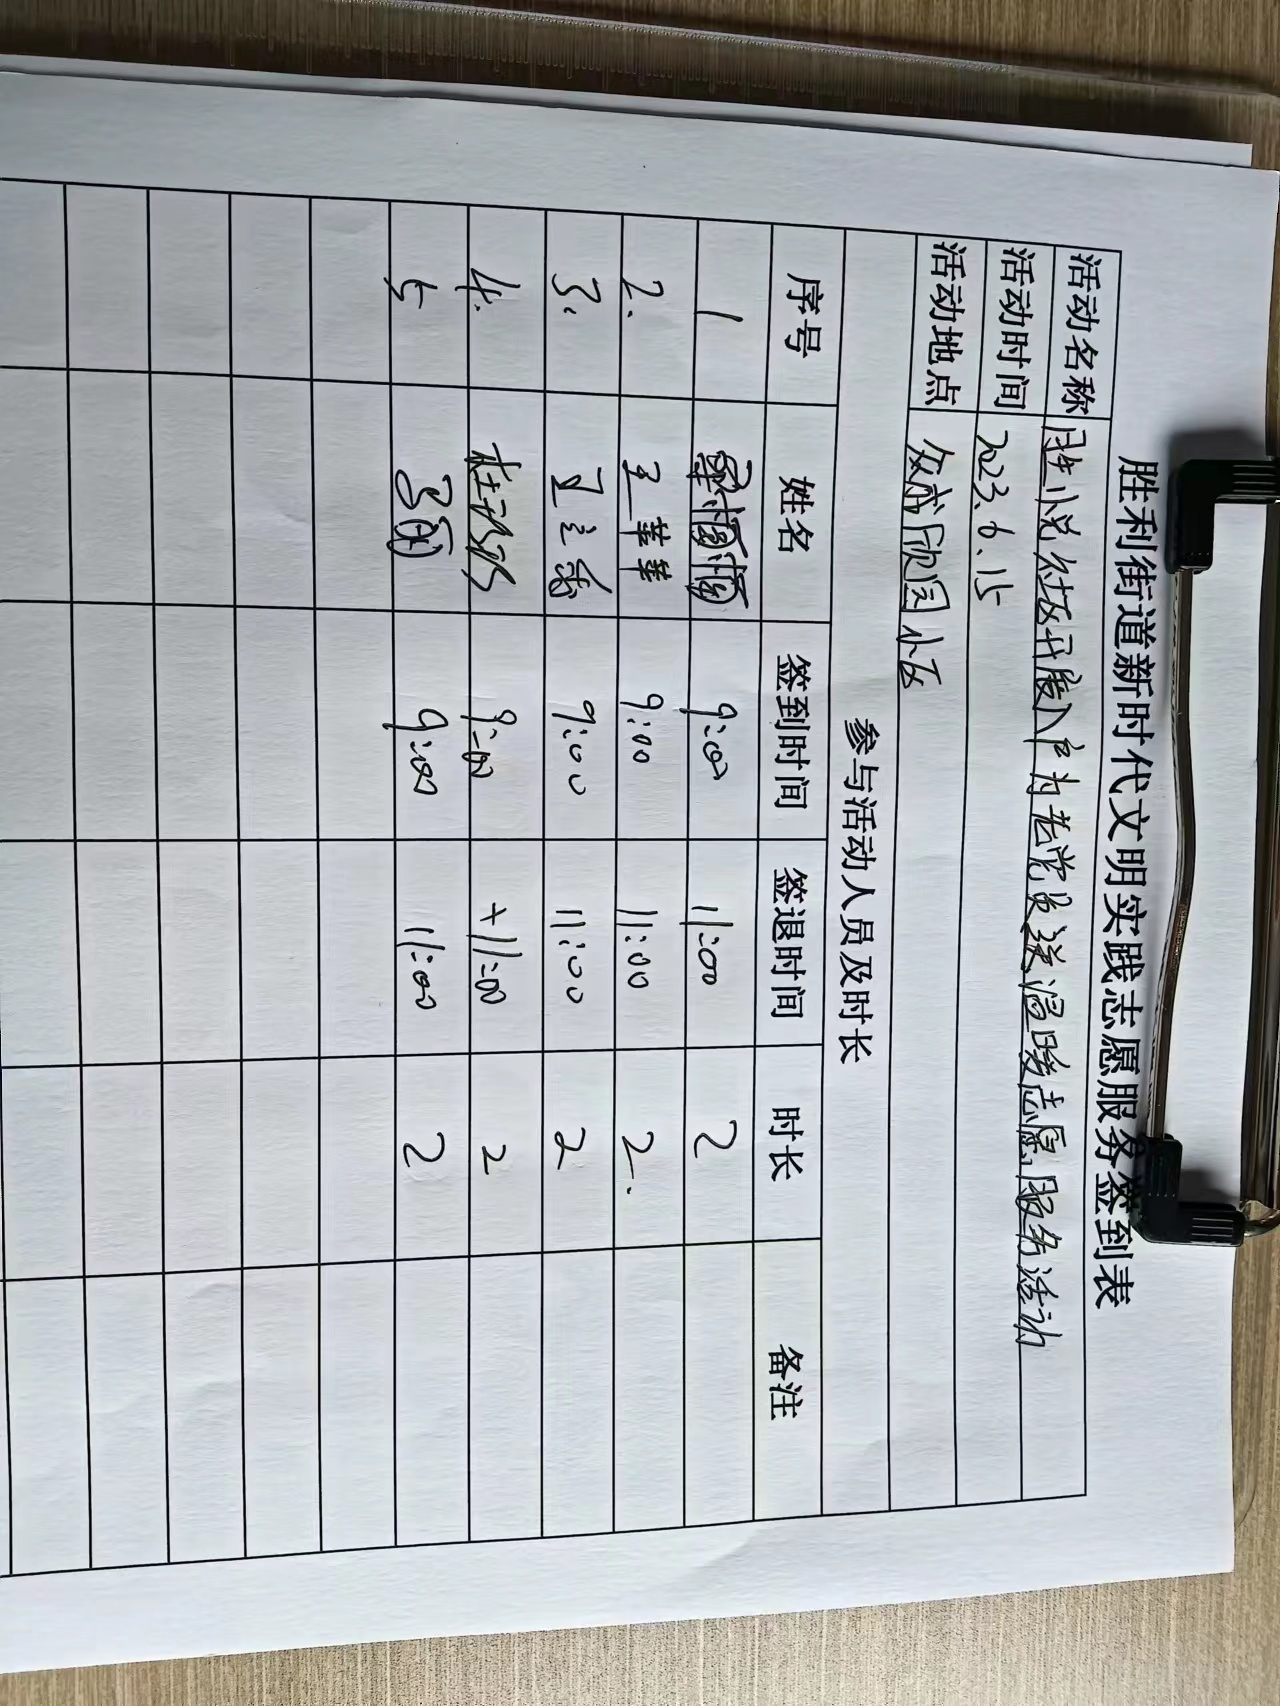 胜利街道新时代文明实践志愿服务签到表
活动名称 胜小悦社区开展入户为老党员送温暖志愿服务活动
活动时间 2023.6.15
活动地点 众成欣园小区
参与活动人员及时长
序号 姓名 签到时间 签退时间 时长 备注
1 9:00 11:00 2
2. 王苹苹 9:00 11:00 2.
3. 9:00 11:00 2
4. 9:00 11:00 2
5 9:00 11:00 2